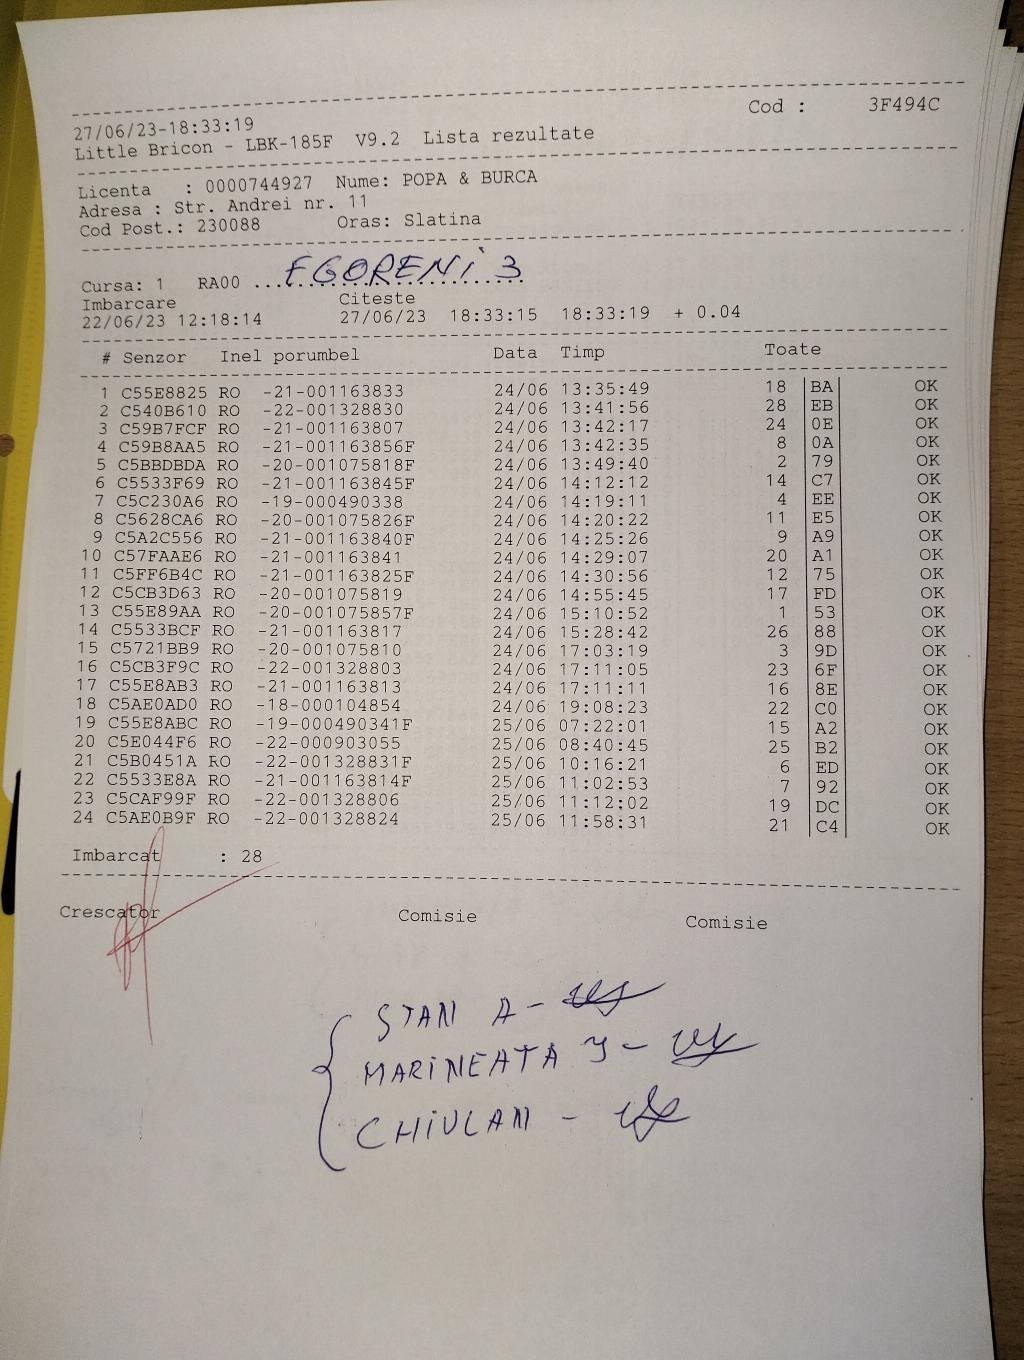 Cod : 3F494C
27/06/23-18:33:19
Little Bricon - LBK-185F V9.2 Lista rezultate
Licenta : 0000744927 Nume: POPA & BURCA
Adresa : Str. Andrei nr. 11
Cod Post.: 230088 Oras: Slatina
Cursa: 1 RA00 ... FGORENI 3
Imbarcare Citeste
22/06/23 12:18:14 27/06/23 18:33:15 18:33:19 + 0.04
# Senzor Inel porumbel Data Timp Toate
1 C55E8825 RO -21-001163833 24/06 13:35:49 18 BA OK
2 C540B610 RO -22-001328830 24/06 13:41:56 28 EB OK
3 C59B7FCF RO -21-001163807 24/06 13:42:17 24 0E OK
4 C59B8AA5 RO -21-001163856F 24/06 13:42:35 8 0A OK
5 C5BBDBDA RO -20-001075818F 24/06 13:49:40 2 79 OK
6 C5533F69 RO -21-001163845F 24/06 14:12:12 14 C7 OK
7 C5C230A6 RO -19-000490338 24/06 14:19:11 4 EE OK
8 C5628CA6 RO -20-001075826F 24/06 14:20:22 11 E5 OK
9 C5A2C556 RO -21-001163840F 24/06 14:25:26 9 A9 OK
10 C57FAAE6 RO -21-001163841 24/06 14:29:07 20 A1 OK
11 C5FF6B4C RO -21-001163825F 24/06 14:30:56 12 75 OK
12 C5CB3D63 RO -20-001075819 24/06 14:55:45 17 FD OK
13 C55E89AA RO -20-001075857F 24/06 15:10:52 1 53 OK
14 C5533BCF RO -21-001163817 24/06 15:28:42 26 88 OK
15 C5721BB9 RO -20-001075810 24/06 17:03:19 3 9D OK
16 C5CB3F9C RO -22-001328803 24/06 17:11:05 23 6F OK
17 C55E8AB3 RO -21-001163813 24/06 17:11:11 16 8E OK
18 C5AE0AD0 RO -18-000104854 24/06 19:08:23 22 C0 OK
19 C55E8ABC RO -19-000490341F 25/06 07:22:01 15 A2 OK
20 C5E044F6 RO -22-000903055 25/06 08:40:45 25 B2 OK
21 C5B0451A RO -22-001328831F 25/06 10:16:21 6 ED OK
22 C5533E8A RO -21-001163814F 25/06 11:02:53 7 92 OK
23 C5CAF99F RO -22-001328806 25/06 11:12:02 19 DC OK
24 C5AE0B9F RO -22-001328824 25/06 11:58:31 21 C4 OK
Imbarcat : 28
Crescator Comisie Comisie
STAN A -
MARINEATA Y -
CHIULAN -